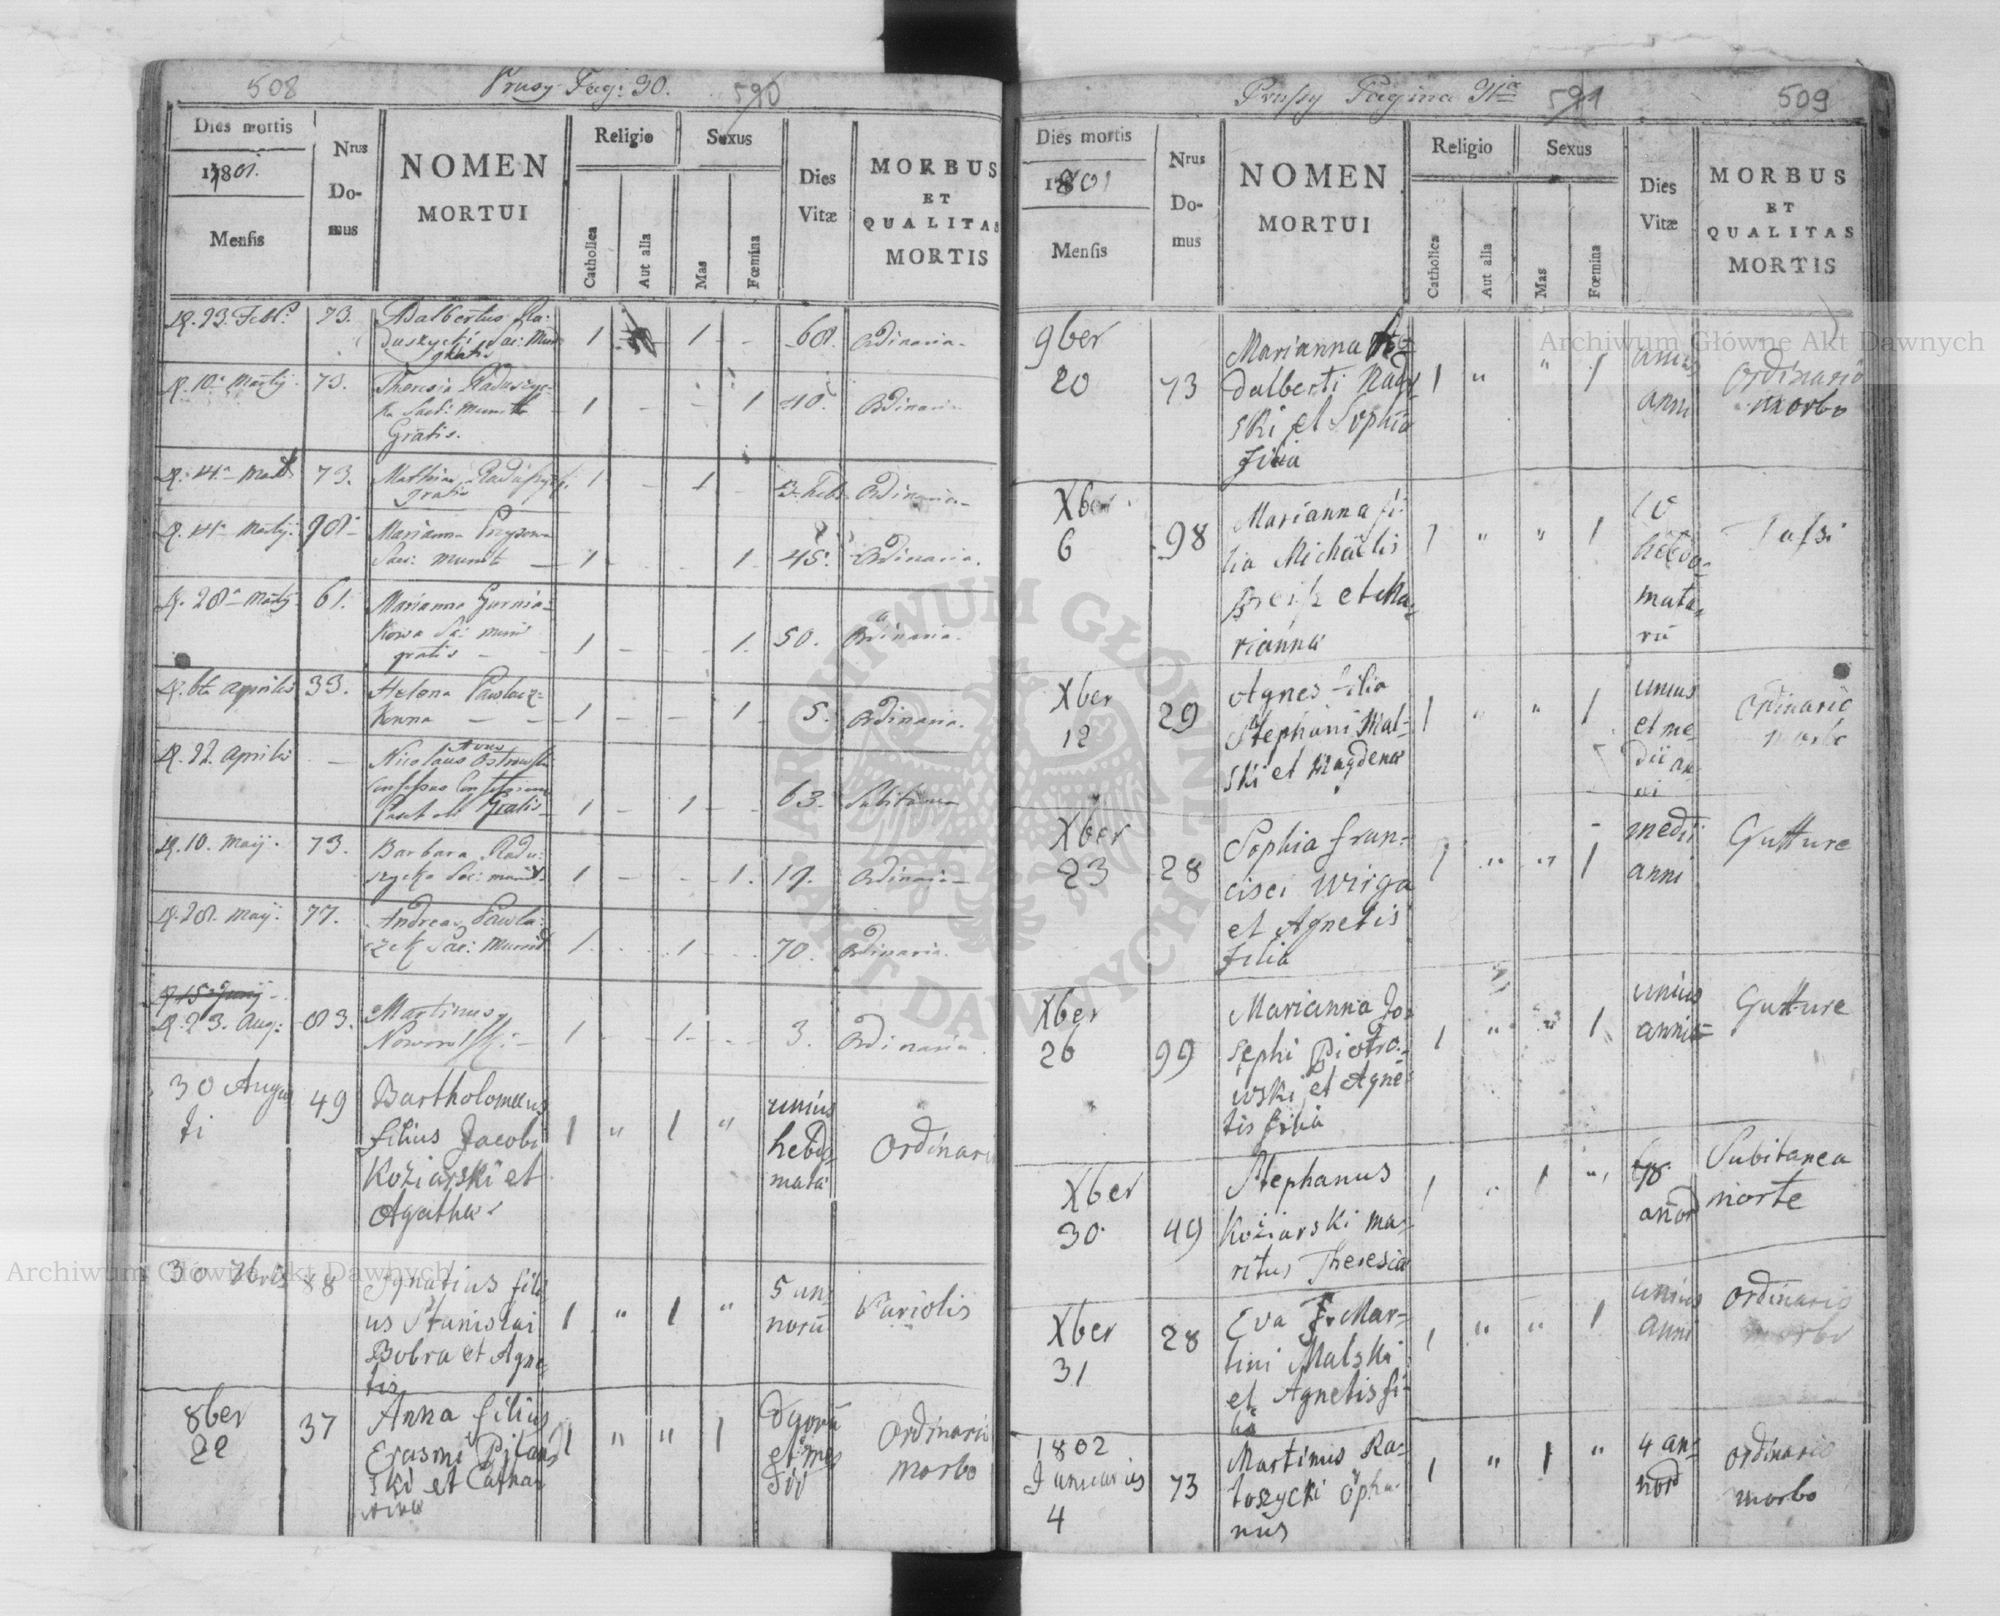 508
Prusy Pag: 30.
590
Dies mortis
1801.
Mensis
Nrus
Do-
mus
NOMEN
MORTUI
Religio
Catholica
Aut alia
Sexus
Mas
Fœmina
Dies
Vitæ
MORBUS
ET
QUALITAS
MORTIS
D. 23. Febr.
73.
Adalbertus Ra:
duszycki Sac: Mun
gratis
1
1
60.
Ordinaria.
D. 10. Martij.
73.
Theresia Raduszyc-
ka Sacr: munita
Gratis.
1
1
40.
Ordinaria
D. 14. Mart
73.
Mathias
gratis
1
1
3. heb.
Ordinaria
D. 14. Martij.
Marianna
Sac: munit
1
1
45.
Ordinaria.
D. 28. Martij
61.
Marianna Gurnia-
kowa Sac: munit
gratis
1
1.
50.
Ordinaria.
D. 6ta Aprilis
33.
Helena Pawlacz-
konna
1
1
5.
Ordinaria.
D. 22. Aprilis
Nicolaus Ostrowski
Gratis
1
1
63.
Subitanea
D. 10. Maij.
73.
Barbara Radu:
szycka Sac: munit.
1
1.
19.
Ordinaria
D. 28. Maij.
77.
Andreas Pawla:
czek Sac: Munit
1
1
70.
Ordinaria.
D. 15 Junij
D. 23. Aug:
83.
Martinus
Nowowlski
1
1
3.
Ordinaria.
30 Augus
ti
49
Bartholomeus
filius Jacobi
Koziarski et
Agathæ
1
"
1
"
unius
hebdo-
mata
Ordinari
30 7bris
88
Ignatius fili
us Stanislai
Bobra et Agne-
tis
1
"
1
"
5 an-
norū
Variolis
8ber
22
37
Anna filius
Erasmi Pitans
ski et Cathar
rinæ
1
"
"
1
et me
dij
Ordinario
morbo
Prussy Pagina 31a
591
509
Dies mortis
1801
Mensis
Nrus
Do-
mus
NOMEN
MORTUI
Religio
Catholica
Aut alia
Sexus
Mas
Fœmina
Dies
Vitæ
MORBUS
ET
QUALITAS
MORTIS
9ber
20
73
Marianna A
dalberti Rady
ski et Sophia
filia
1
"
"
1
unius
anni
Ordinario
morbo
Xber
6
98
Marianna fi-
lia Michaelis
Breisz et Ma-
rianna
1
"
"
1
10
hebdo-
mata-
rū
Tussi
Xber
12
29
Agnes filia
Stephani Mal-
ski et Magdena
1
"
"
1
unius
et me-
dii an
ni
Ordinario
morbo
Xber
23
28
Sophia fran-
cisci Wirga
et Agnetis
filia
1
"
"
1
medii
anni
Gutture
Xber
26
99
Marianna Jo-
sephi Piotro-
wski et Agne-
tis filia
1
"
"
1
unius
anni
Gutture
Xber
30
49
Stephanus
Koziarski ma-
ritus Theresia
1
"
1
"
68
anor
Subitanea
morte
Xber
31
28
Eva F. Mar-
tini Malski
et Agnetis fi-
lia
1
"
"
1
unius
anni
Ordinario
morbo
1802
Januarius
4
73
Martinus Ra-
toszycki Opha-
nus
1
"
1
"
4 an-
nor
Ordinario
morbo
Archiwum Główne Akt Dawnych
Archiwum Główne Akt Dawnych
ARCHIWUM GŁÓWNE · AKT DAWNYCH ·